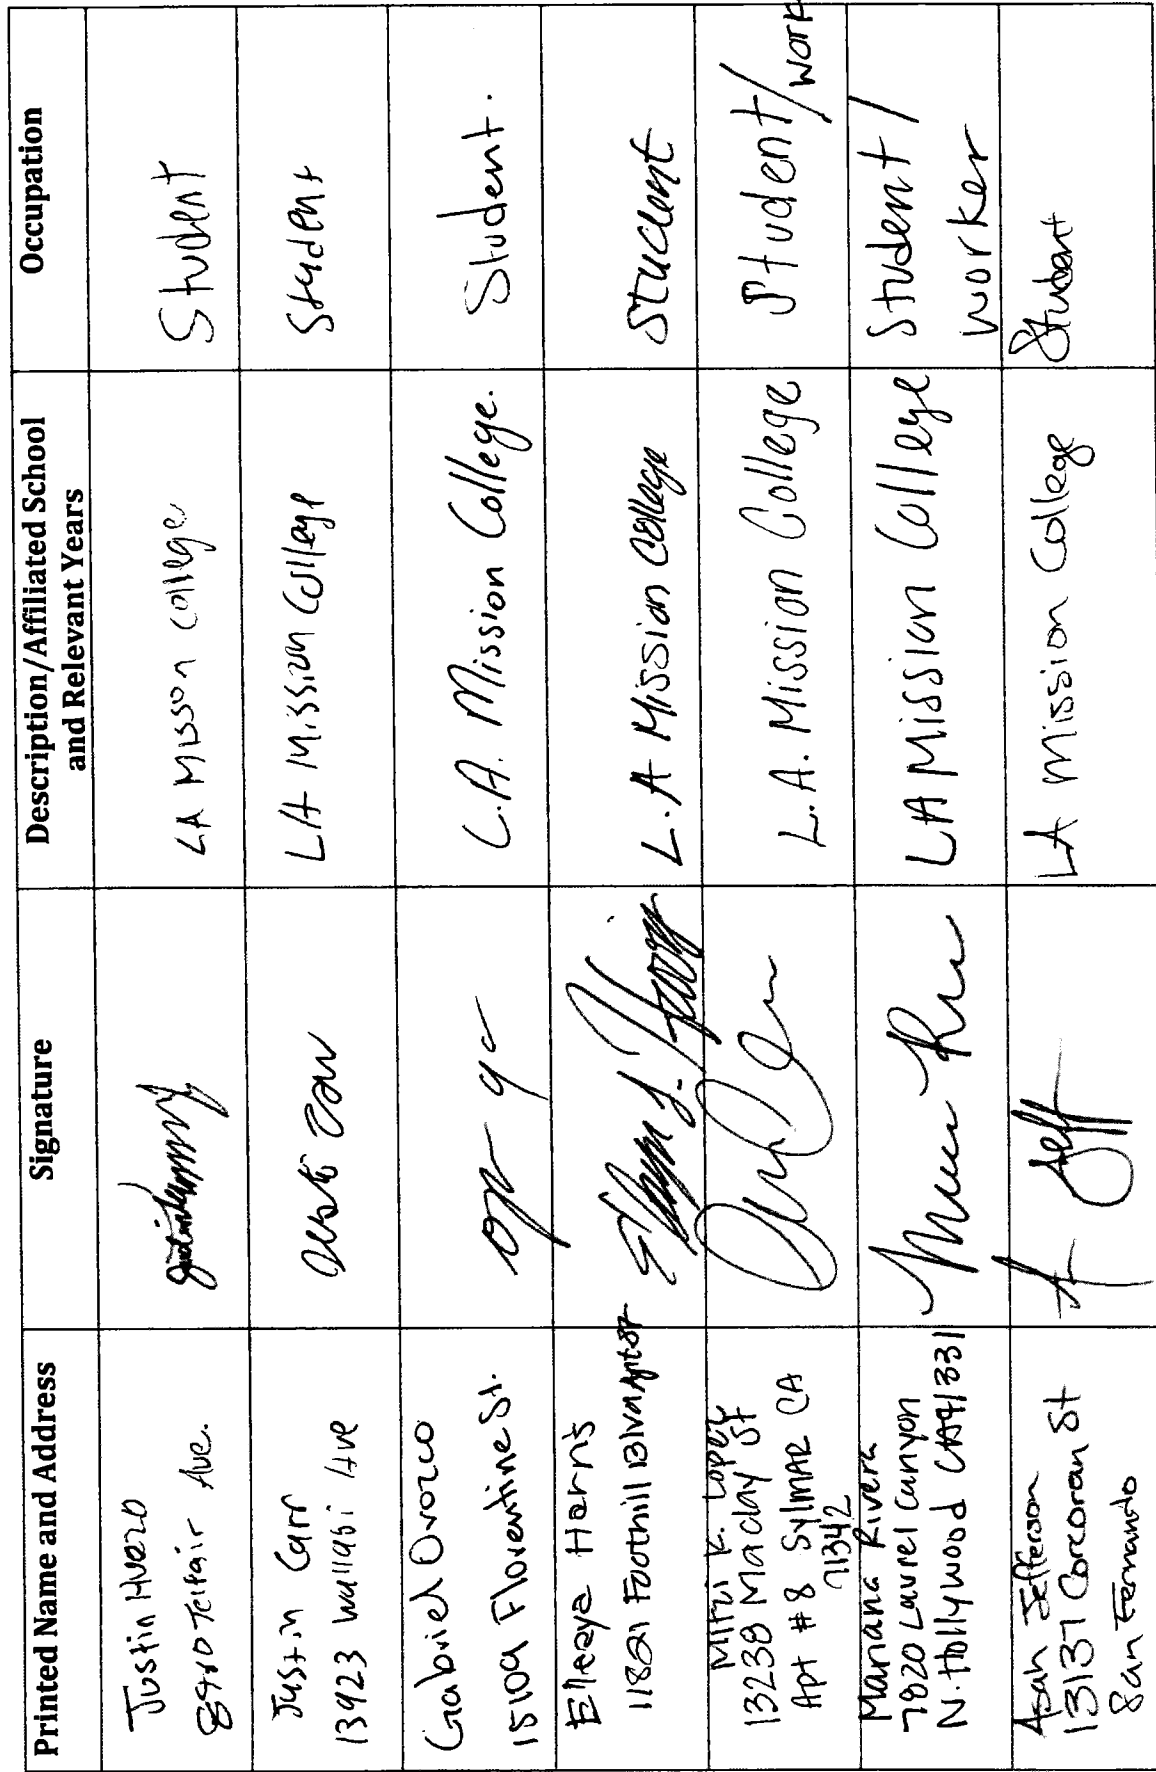 Printed Name and Address
Signature
Description/Affiliated School
and Relevant Years
Occupation
Justin Huezo
Telfair Ave.
LA Misson college
Student
Justin Carr
13923 wallabi Ave
LA Mission College
Student
Gabriel Orozco
15109 Florentine St.
L.A. Mission College.
Student.
Harris
11821 Foothill Blvd
L.A Mission College
Student
Mitzi K. Lopez
13238 Maclay St
Apt #8 Sylmar CA
L.A. Mission College
Student/work
Mariana Rivera
7820 Laurel Canyon
N. Hollywood CA 91331
LA Mission College
Student/
worker
Asah Jefferson
13137 Corcoran St
San Fernando
LA Mission College
Student